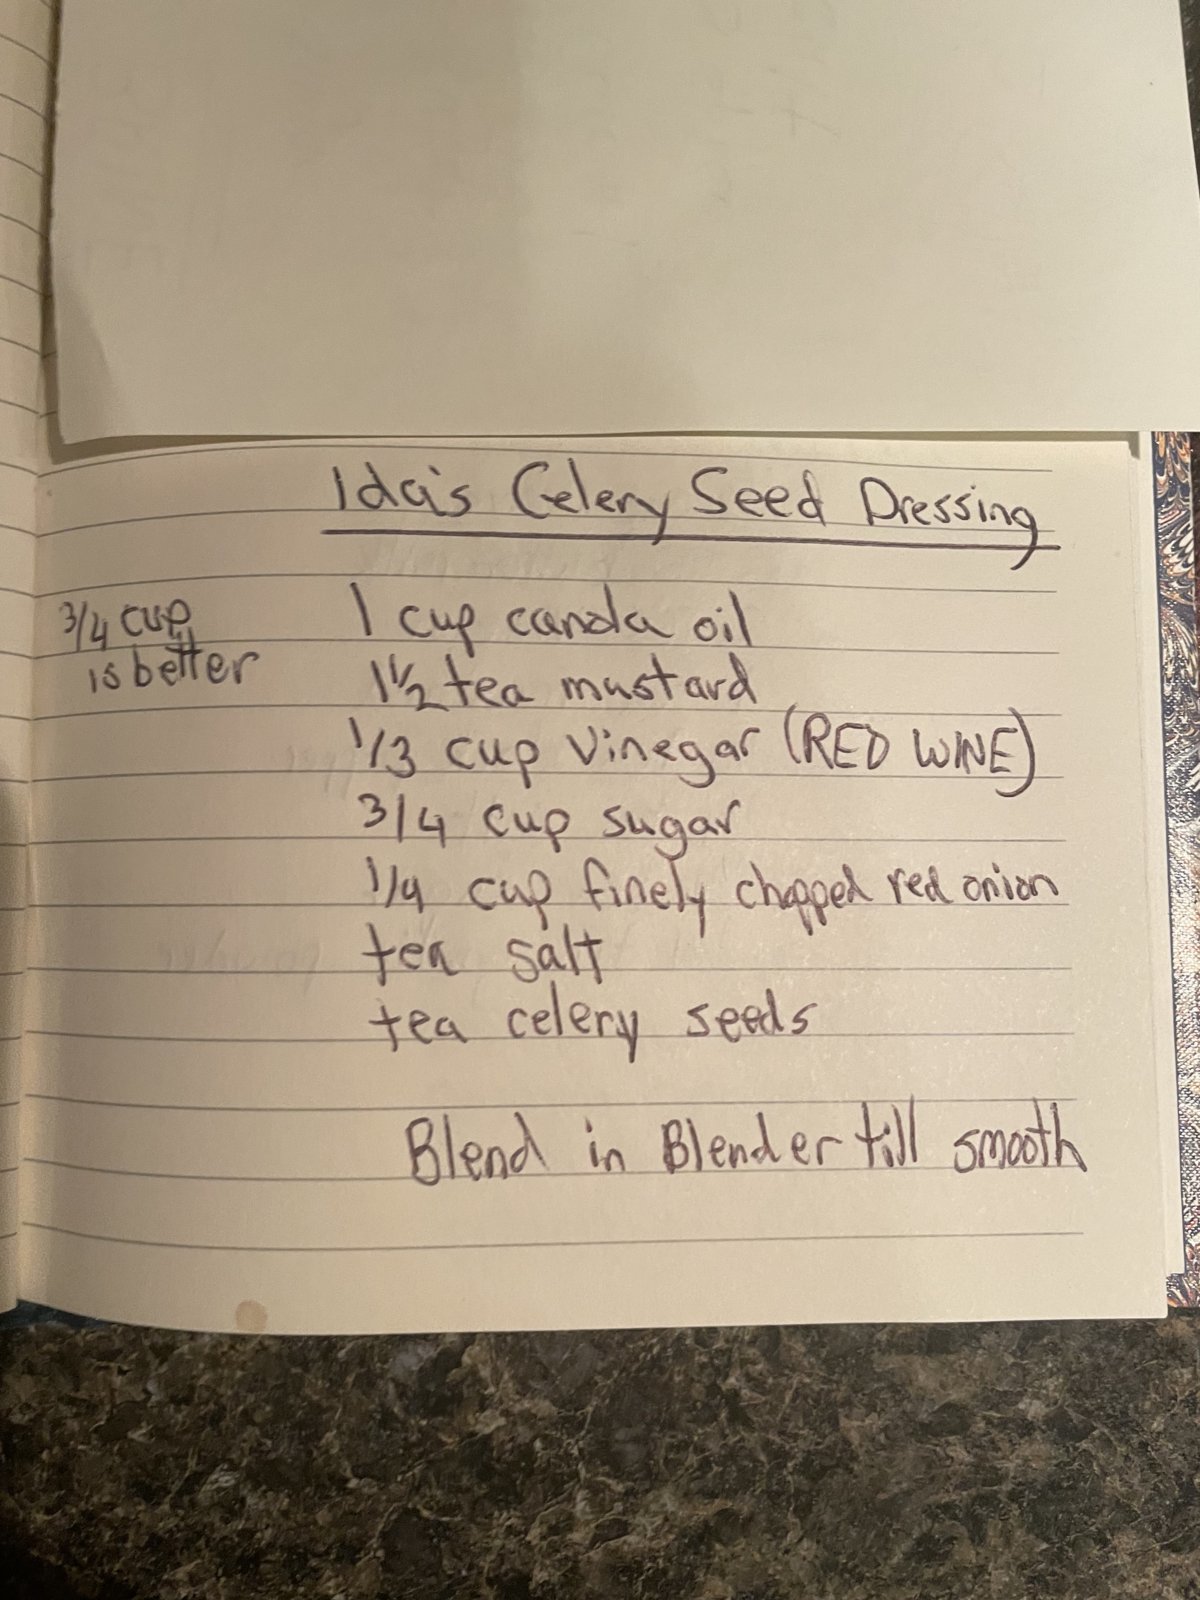 Ida's Celery Seed Dressing
3/4 cup
is better
1 cup canola oil
1 1/2 tea mustard
1/3 cup vinegar (RED WINE)
3/4 cup sugar
1/4 cup finely chopped red onion
tea salt
tea celery seeds
Blend in Blender till smooth